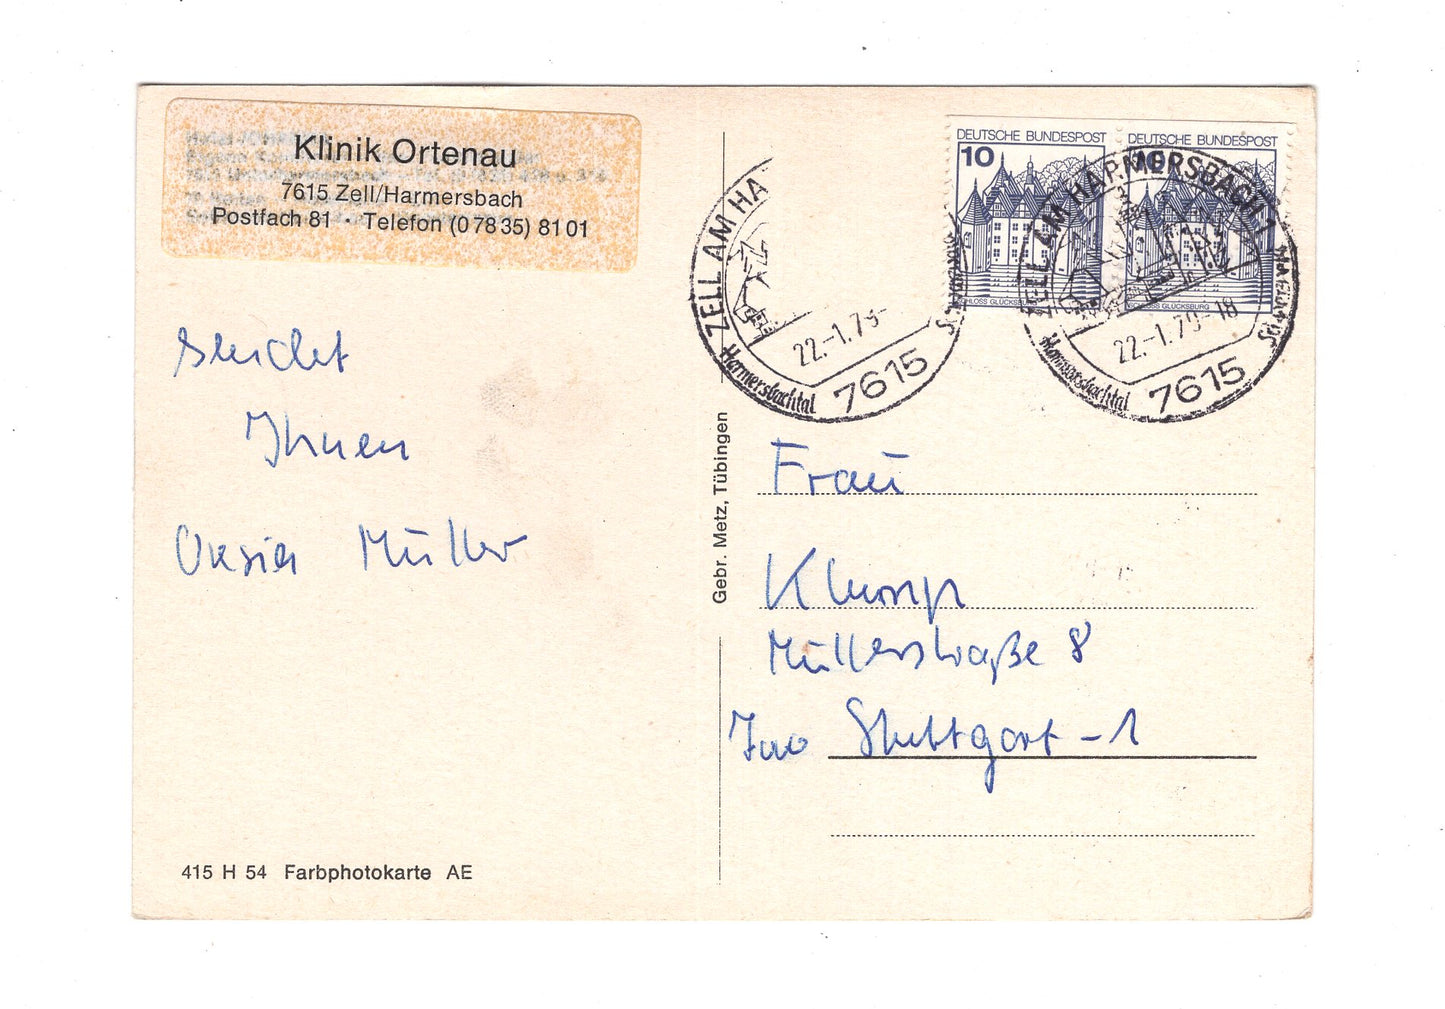 Klinik Ortenau
7615 Zell/Harmersbach
Postfach 81 · Telefon (0 78 35) 81 01
sendet
Ihnen
Müller
415 H 54 Farbphotokarte AE
Gebr. Metz, Tübingen
ZELL AM HA
22.-1.79-
Harmersbachtal
7615
DEUTSCHE BUNDESPOST
10
SCHLOSS GLÜCKSBURG
DEUTSCHE BUNDESPOST
10
SCHLOSS GLÜCKSBURG
ZELL AM HARMERSBACH 1
22.-1.79-18
Harmersbachtal
7615
Frau
Klump
Müllerstraße 8
7000 Stuttgart-1